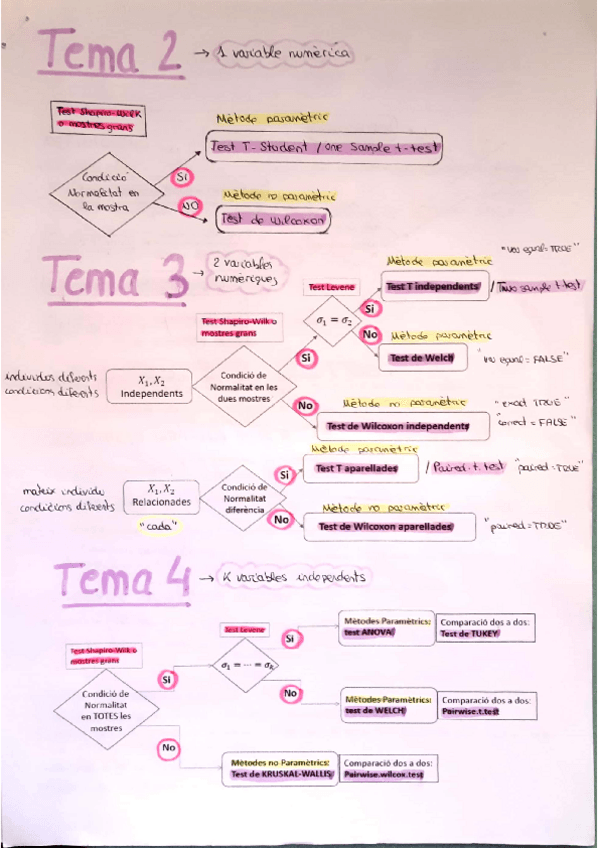 Tema 2 → 1 variable numèrica
Test Shapiro-Wilk
o mostres grans
Mètode paramètric
Test T-Student / one sample t-test
Condició
Normalitat en
la mostra
Sí
NO
Mètode no paramètric
Test de Wilcoxon
Tema 3 → 2 variables
numèriques
"var equal = TRUE"
Mètode paramètric
Test Levene
Test T independents / Two sample t-test
σ₁ = σ₂
Si
No
Mètode paramètric
Test de Welch "var equal = FALSE"
Test Shapiro-Wilk o
mostres grans
Si
individus diferents
condicions diferents
X₁, X₂
Independents
Condició de
Normalitat en les
dues mostres
No
Mètode no paramètric "exact TRUE"
Test de Wilcoxon independents "correct = FALSE"
Mètode paramètric
Si
Test T aparellades / Paired-t.test "paired = TRUE"
mateix individu
condicions diferents
X₁, X₂
Relacionades
"cada"
Condició de
Normalitat
diferència
No
Mètode no paramètric
Test de Wilcoxon aparellades "paired = TRUE"
Tema 4 → K variables independents
Test Levene
Si
Mètodes Paramètrics:
test ANOVA
Comparació dos a dos:
Test de TUKEY
Test Shapiro-Wilk o
mostres grans
σ₁ = ⋯ = σₖ
Si
No
Mètodes Paramètrics:
test de WELCH
Comparació dos a dos:
Pairwise.t.test
Condició de
Normalitat
en TOTES les
mostres
No
Mètodes no Paramètrics:
Test de KRUSKAL-WALLIS
Comparació dos a dos:
Pairwise.wilcox.test